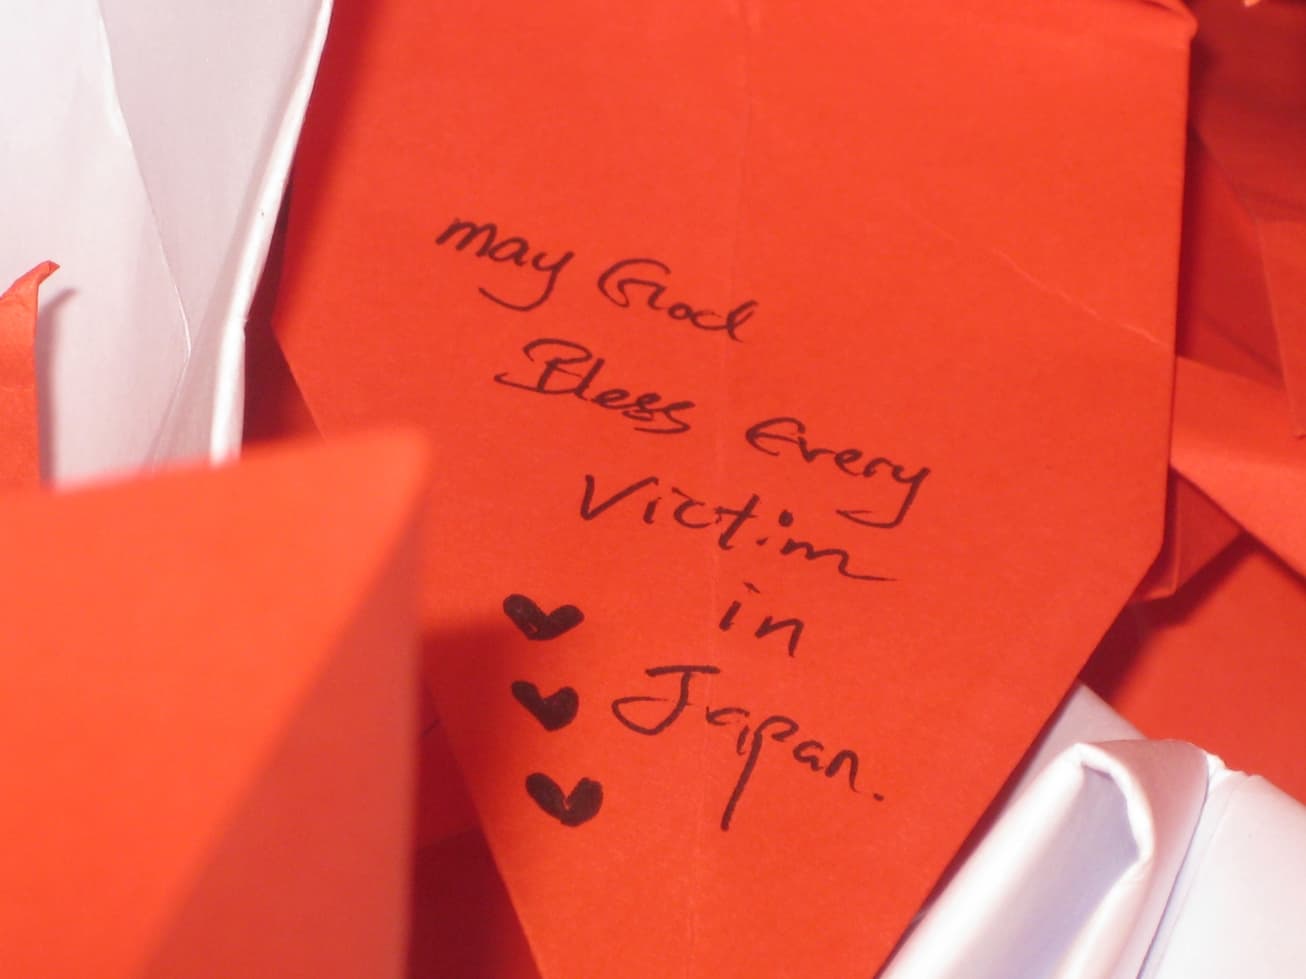 may God
Bless Every
Victim
in
Japan.